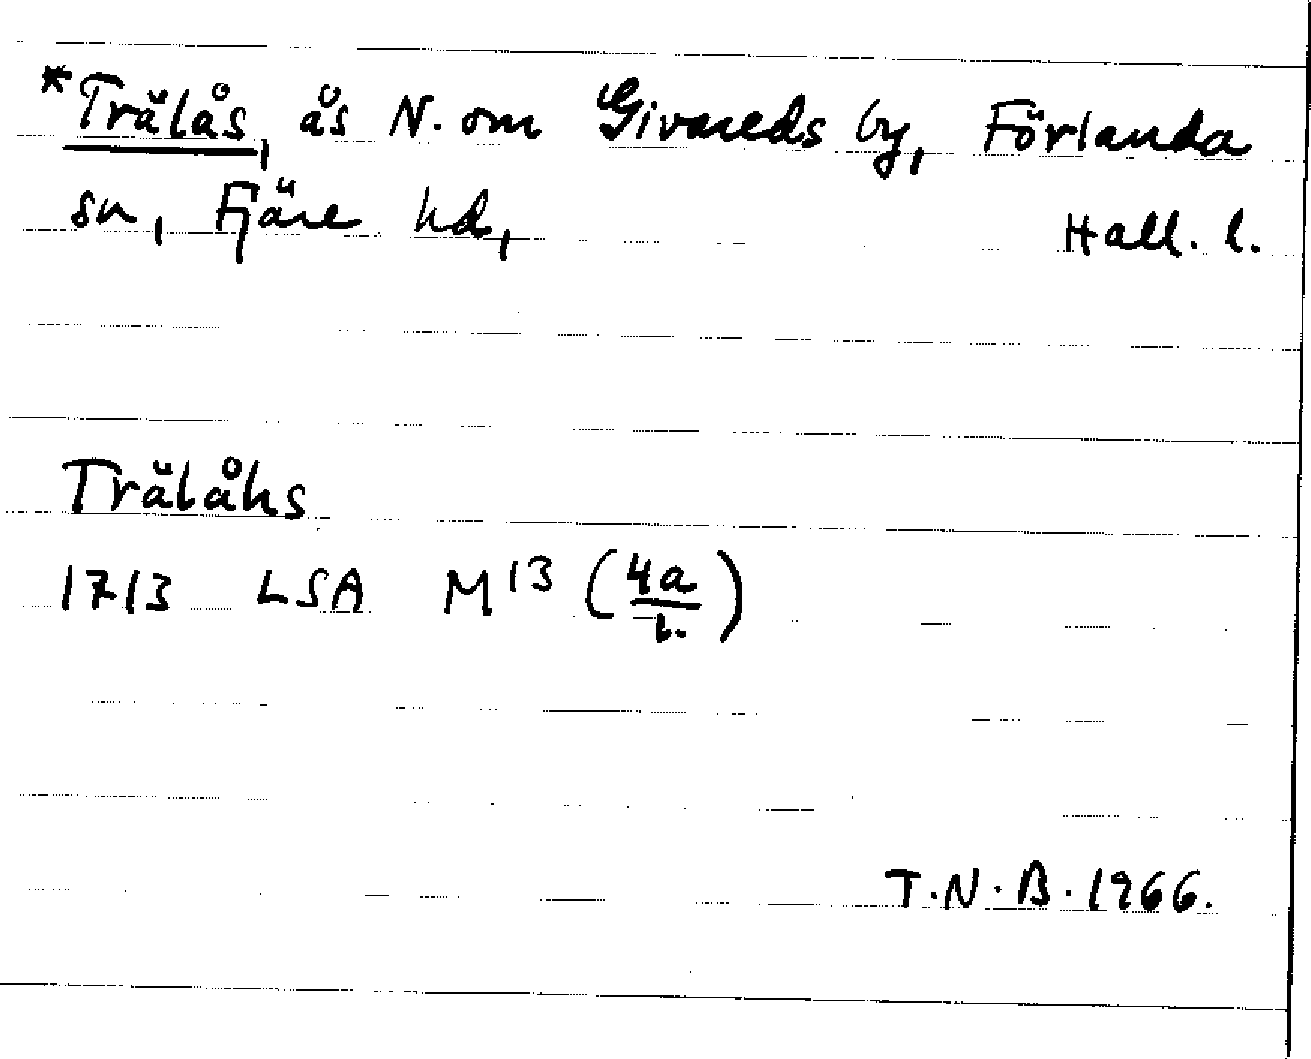 *Trälås, ås N. om Givareds by, Förlanda
sn, Fjäre hd, Hall. l.
Trälåhs
1713 LSA M13 (4a/1.)
T.N.B. 1966.